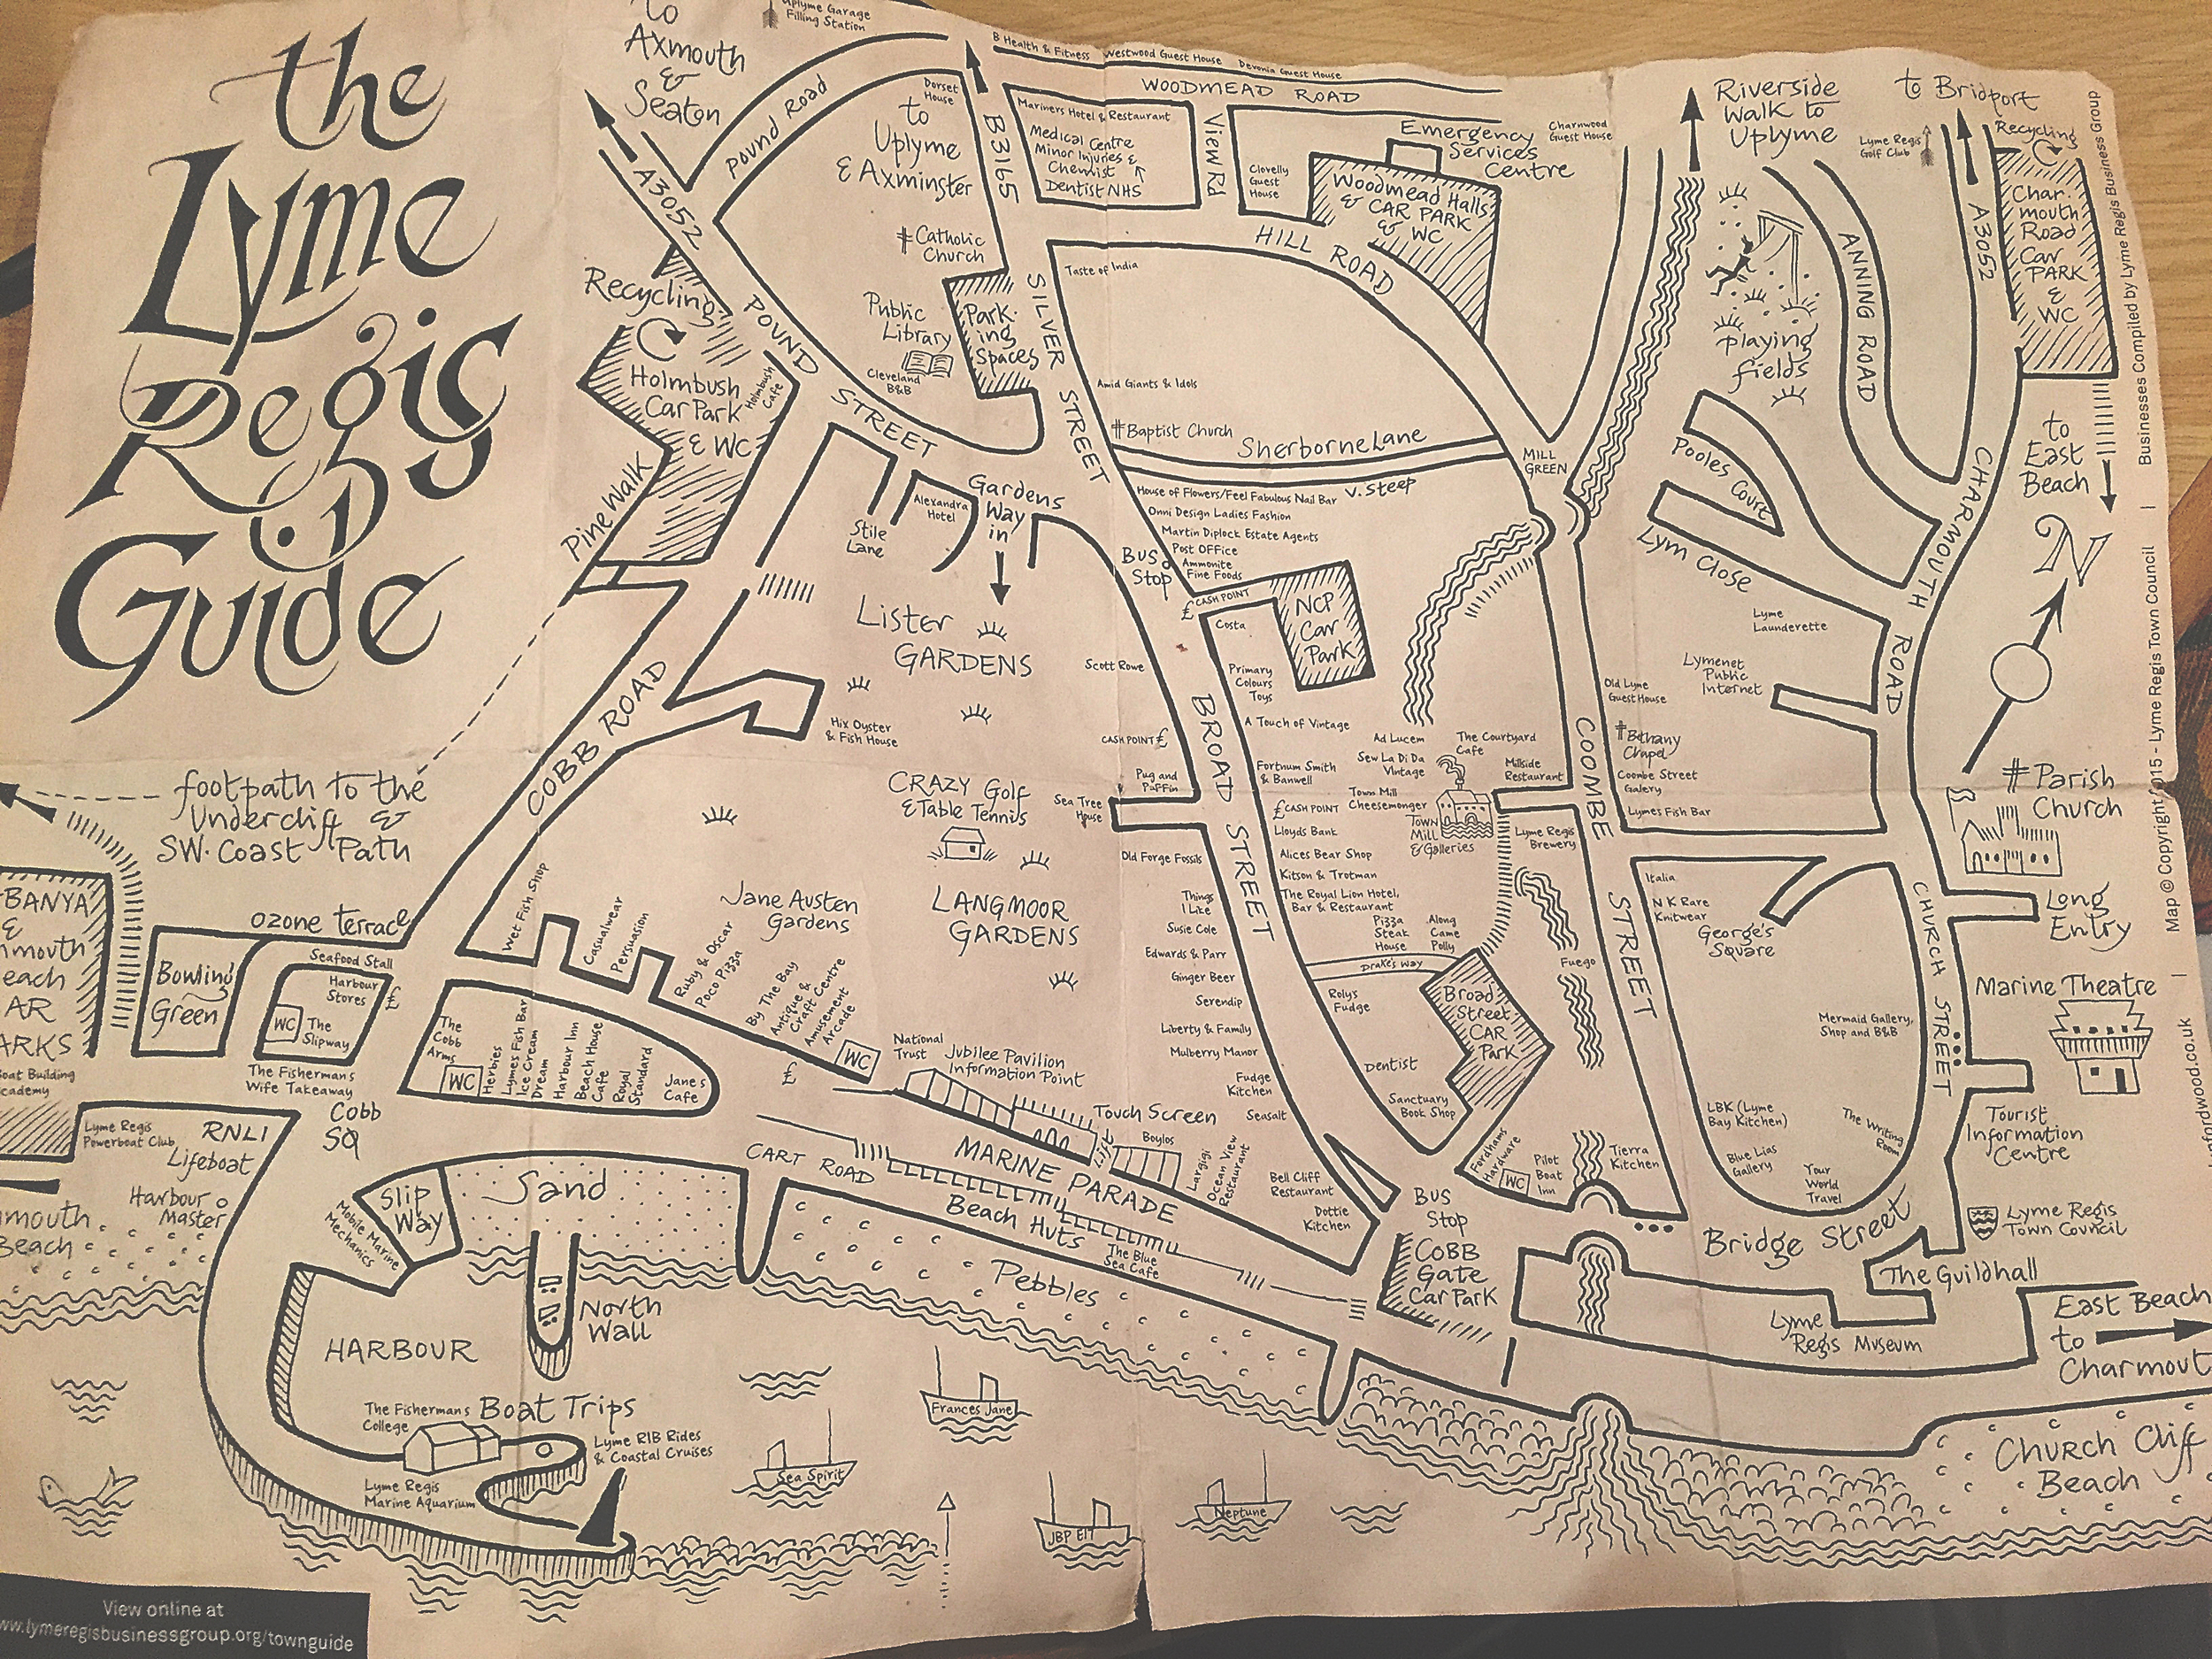 the
Lyme
Regis
Guide
to
Axmouth
&
Seaton
Uplyme Garage
Filling Station
A3052
Pound Road
Dorset
House
to
Uplyme
& Axminster
B3165
B Health & Fitness
Westwood Guest House
Devonia Guest House
WOODMEAD ROAD
Mariners Hotel & Restaurant
Medical Centre
Minor Injuries &
Chemist
Dentist NHS
View Rd
Clovelly
Guest
House
Emergency
Services
Centre
Charnwood
Guest House
Woodmead Halls
& CAR PARK
& WC
HILL ROAD
Riverside
Walk to
Uplyme
to Bridport
Lyme Regis
Golf Club
A3052
Recycling
Char-
mouth
Road
Car
PARK
&
WC
Playing
fields
ANNING ROAD
to
East
Beach
N
CHARMOUTH
ROAD
Pooles
Court
Lym Close
Catholic
Church
Public
Library
Cleveland
B&B
Park-
ing
Spaces
SILVER
STREET
Taste of India
Amid Giants & Idols
Baptist Church
Sherborne Lane
V. Steep
MILL
GREEN
Recycling
Holmbush
Car Park
& WC
Holmbush
Cafe
POUND
STREET
Pine Walk
Stile
Lane
Alexandra
Hotel
Gardens
Way
in
House of Flowers/Feel Fabulous Nail Bar
Onni Design Ladies Fashion
Martin Diplock Estate Agents
Post Office
Ammonite
Fine Foods
Bus
Stop
£ CASH POINT
Costa
NCP
Car
Park
Lister
GARDENS
Scott Rowe
Primary
Colours
Toys
A Touch of Vintage
CASH POINT £
BROAD
STREET
Pug and
Puffin
Sea Tree
House
Old Forge Fossils
Things
I Like
Susie Cole
Edwards & Parr
Ginger Beer
Serendip
Liberty & Family
Mulberry Manor
Fudge
Kitchen
Seasalt
Bell Cliff
Restaurant
Dottie
Kitchen
Fortnum Smith
& Banwell
£ CASH POINT
Lloyds Bank
Alices Bear Shop
Kitson & Trotman
The Royal Lion Hotel,
Bar & Restaurant
Pizza
Steak
House
Along
Came
Polly
Drake's Way
Rolys
Fudge
Dentist
Sanctuary
Book Shop
Broad
Street
CAR
Park
Ad Lucem
Sew La Di Da
Vintage
The Courtyard
Cafe
Town Mill
Cheesemonger
Town
Mill
& Galleries
Millside
Restaurant
Lyme Regis
Brewery
Fuego
COOMBE
STREET
Old Lyme
Guest House
Bethany
Chapel
Coombe Street
Galery
Lymes Fish Bar
Lyme
Launderette
Lymenet
Public
Internet
Italia
N K Rare
Knitwear
George's
Square
Mermaid Gallery,
Shop and B&B
LBK (Lyme
Bay Kitchen)
Blue Lias
Gallery
The Writing
Room
Your
World
Travel
CHURCH STREET
Parish
Church
Long
Entry
Marine Theatre
Tourist
Information
Centre
Lyme Regis
Town Council
Bridge Street
The Guildhall
Lyme
Regis Museum
East Beach
to
Charmout
Church Cliff
Beach
Fordhams
Hardware
WC
Pilot
Boat
Inn
Tierra
Kitchen
BUS
Stop
COBB
Gate
Car Park
COBB ROAD
Hix Oyster
& Fish House
CRAZY Golf
& Table Tennis
LANGMOOR
GARDENS
Jane Austen
Gardens
footpath to the
Undercliff &
SW. Coast Path
BANYA
&
nmouth
each
AR
ARKS
oat Building
cademy
Bowling
Green
Ozone Terrace
Seafood Stall
Harbour
Stores
£
WC
The
Slipway
The Fishermans
Wife Takeaway
Wet Fish Shop
Casualwear
Persuasion
Ruby & Oscar
Poco Pizza
By The Bay
Antique &
Craft Centre
Amusement
Arcade
WC
£
The
Cobb
Arms
WC
Herbies
Lymes Fish Bar
Ice Cream
Dream
Harbour Inn
Beach House
Cafe
Royal
Standard
Jane's
Cafe
National
Trust
Jubilee Pavilion
Information Point
Touch Screen
Lift
Boylos
Largigi
Ocean View
Restaurant
MARINE PARADE
CART ROAD
Beach Huts
The Blue
Sea Cafe
Pebbles
Sand
Slip
Way
Cobb
SQ
Lyme Regis
Powerboat Club
RNLI
Lifeboat
Harbour
Master
nmouth
Beach
Mobile Marine
Mechanics
North
Wall
HARBOUR
The Fishermans
College
Boat Trips
Lyme RIB Rides
& Coastal Cruises
Lyme Regis
Marine Aquarium
Sea Spirit
Frances Jane
JBP E17
Neptune
View online at
ww.lymeregisbusinessgroup.org/townguide
Map © Copyright 2015 - Lyme Regis Town Council | Businesses Compiled by Lyme Regis Business Group
nfordwood.co.uk |